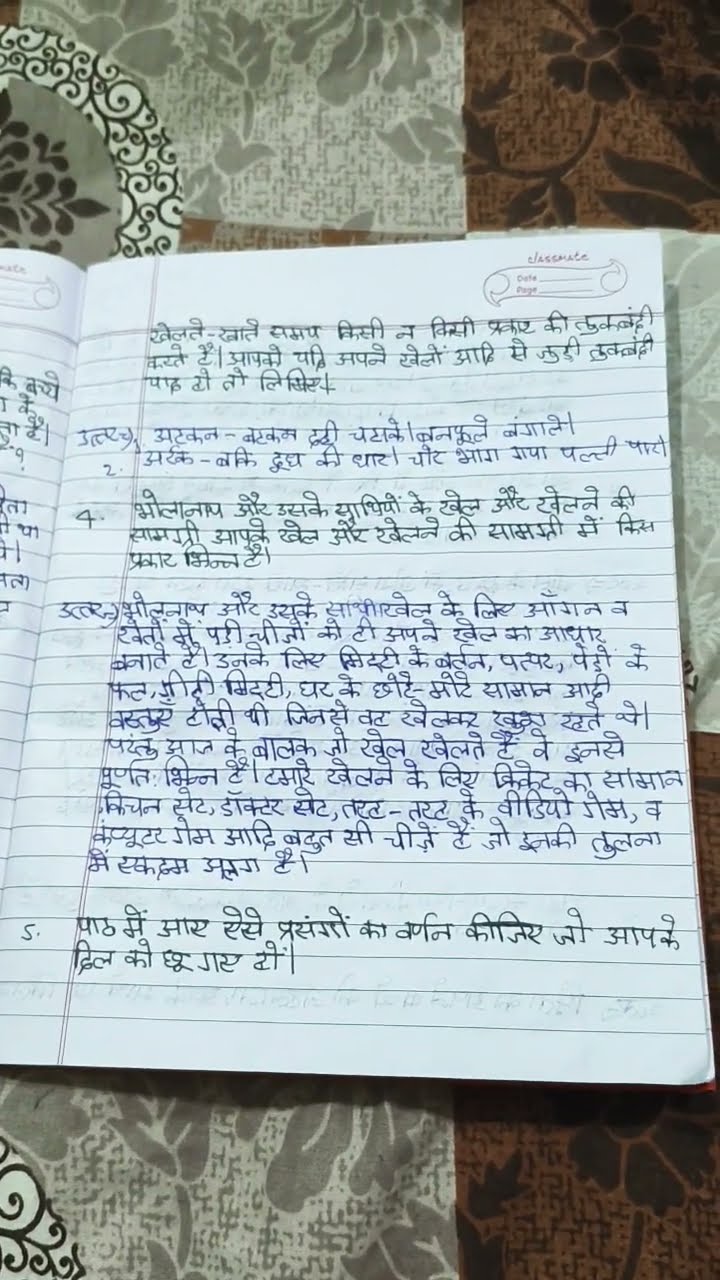 classmate
Date
Page
खेलते-खाते समय किसी न किसी प्रकार की तुकबंदी
करते हैं। आपको यदि अपने खेलों आदि से जुड़ी तुकबंदी
याद हो तो लिखिए।
उत्तर) 1. अटकन - बटकन दही चटाके। बनफूले बंगाले।
2. अरक - बकि दूध की धार। चोर भाग गया पल्ली पार।
4. भोलानाथ और उसके साथियों के खेल और खेलने की
सामग्री आपके खेल और खेलने की सामग्री में किस
प्रकार भिन्न है।
उत्तर) भोलनाथ और उसके साथी खेल के लिए आँगन व
खेतों में पड़ी चीजों को ही अपने खेल का आधार
बनाते हैं। उनके लिए मिट्टी के बर्तन, पत्थर, पेड़ों के
फल, गीली मिट्टी, घर के छोटे-मोटे सामान आदी
वस्तुएँ होती थी जिनसे वह खेलकर खुश रहते थे।
परंतु आज के बालक जो खेल खेलते हैं वे इनसे
पूर्णत: भिन्न है। हमारे खेलने के लिए क्रिकेट का सामान
किचन सेट, डॉक्टर सेट, तरह-तरह के वीडियो गेम, व
कंप्यूटर गेम आदि बहुत सी चीज़ें हैं जो इनकी तुलना
में एकदम अलग है।
5. पाठ में आए ऐसे प्रसंगों का वर्णन कीजिए जो आपके
दिल को छू गए हों।